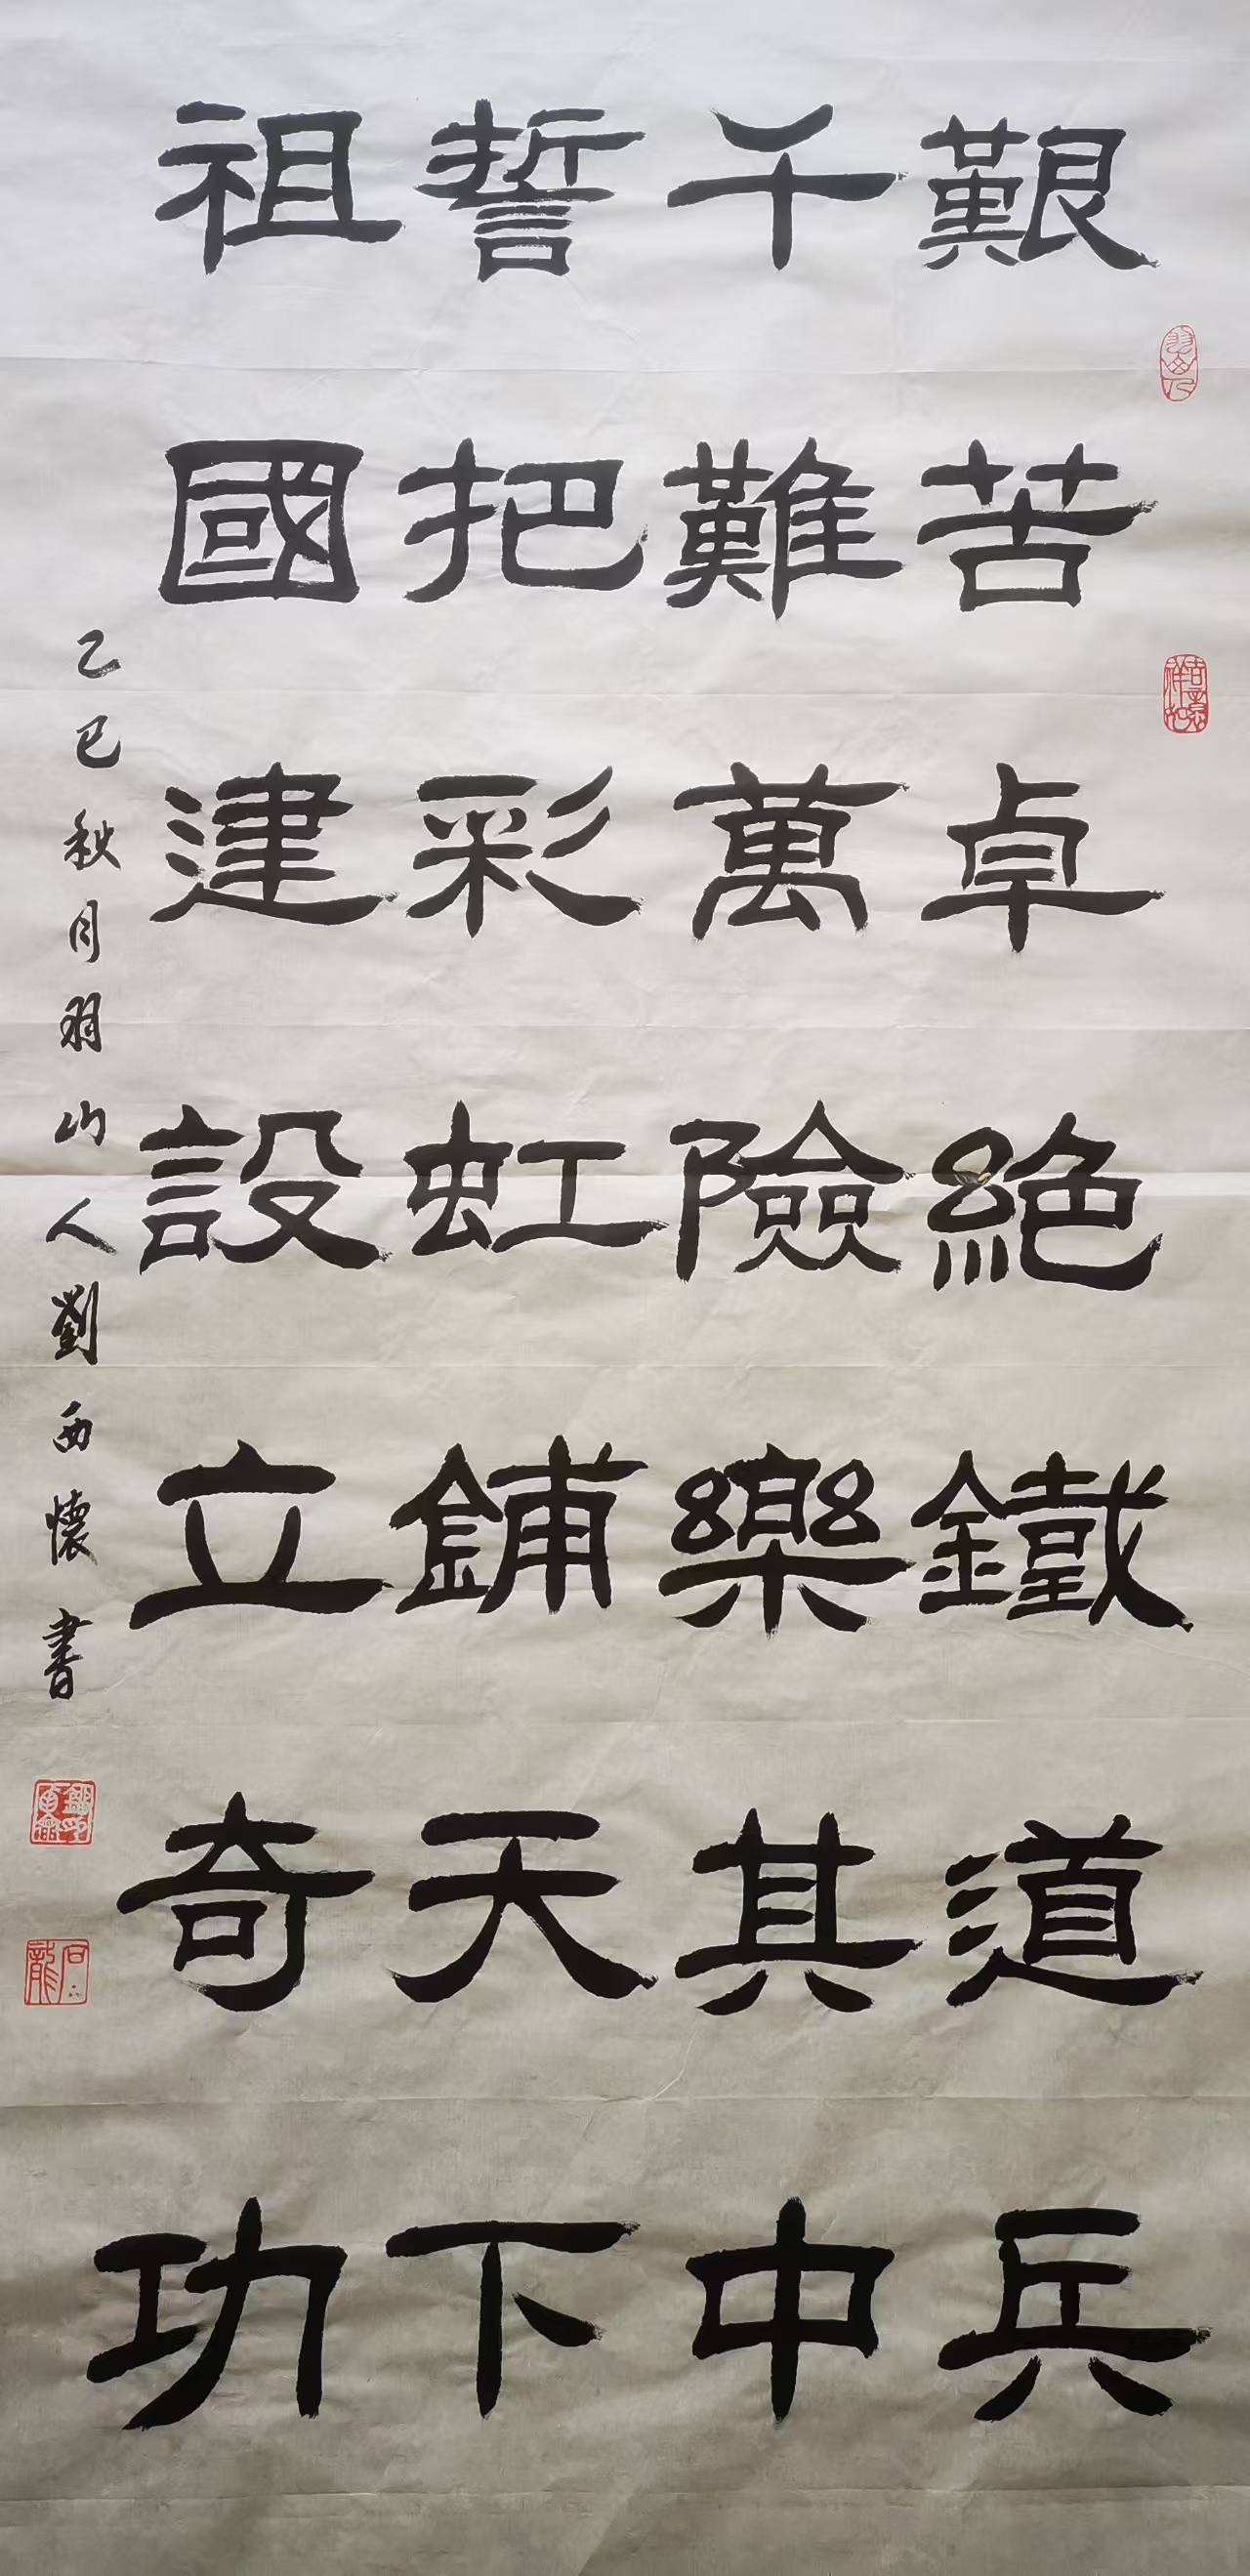 艱苦卓絶鐵道兵
千難萬險樂其中
誓把彩虹鋪天下
祖國建設立奇功
乙巳秋月羽山人劉西懷書
吉祥如意